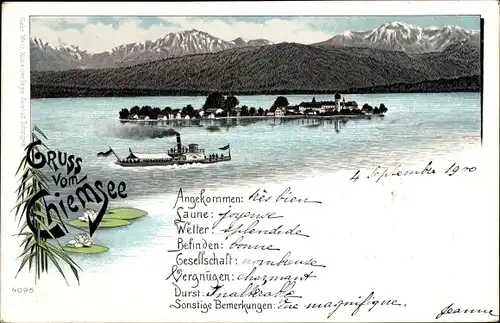 Gruss
vom
Chiemsee
4 September 1900
Angekommen: très bien
Laune: joyeuse
Wetter: splendide
Befinden: bonne
Gesellschaft: nombeuse
Vergnügen: charmant
Durst: Inaltérable
Sonstige Bemerkungen: Vue magnifique.
Jeanne
4095